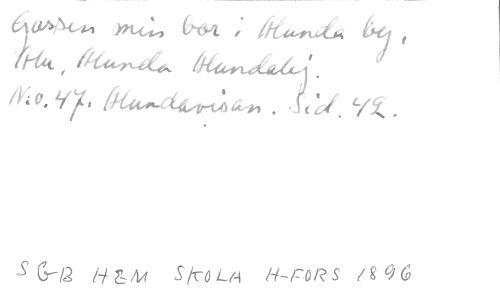 Gossen min bor i Alunda by,
Alu, Alunda Alundalej.
N:o. 47. Alundavisan. Sid. 42.
SGB HEM SKOLA H-FORS 1896